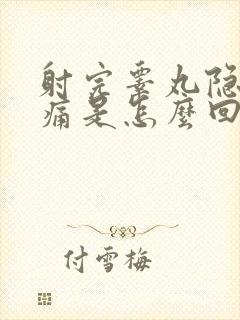 射完睾丸隐
痛是怎麼回
付雪梅